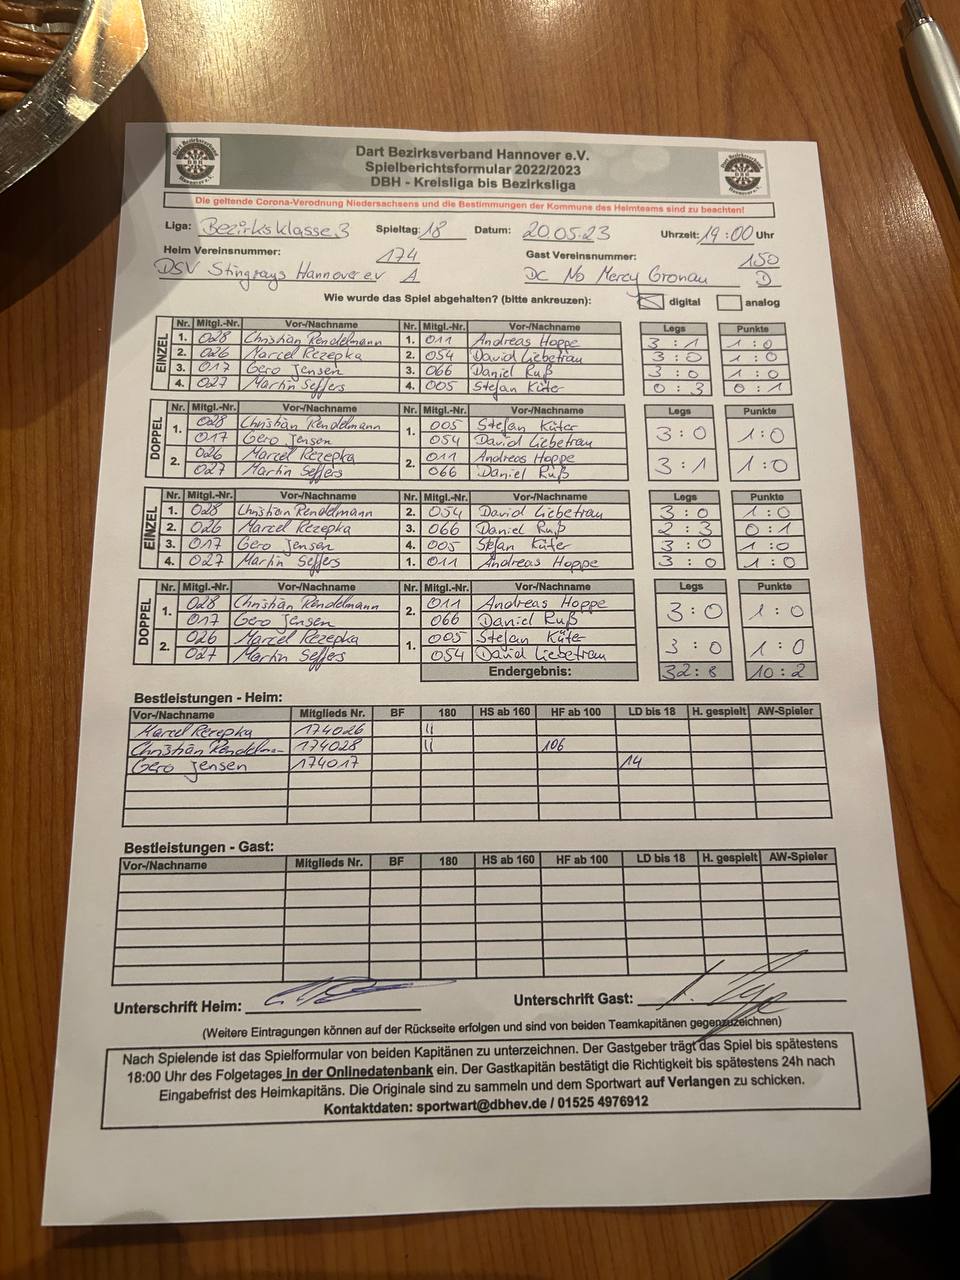 Dart Bezirksverband Hannover e.V.
Spielberichtsformular 2022/2023
DBH - Kreisliga bis Bezirksliga
Die geltende Corona-Verodnung Niedersachsens und die Bestimmungen der Kommune des Heimteams sind zu beachten!
Liga: Bezirksklasse 3 Spieltag: 18 Datum: 20.05.23 Uhrzeit: 19:00 Uhr
Heim Vereinsnummer: 174 Gast Vereinsnummer: 150
DSV Stingrays Hannover e.V A DC No Mercy Gronau D
Wie wurde das Spiel abgehalten? (bitte ankreuzen): digital analog
EINZEL
Nr. Mitgl.-Nr. Vor-/Nachname Nr. Mitgl.-Nr. Vor-/Nachname Legs Punkte
1. 028 Christian Rendelmann 1. 011 Andreas Hoppe 3 : 1 1 : 0
2. 026 Marcel Rezepka 2. 054 David Liebetrau 3 : 0 1 : 0
3. 017 Gero Jensen 3. 066 Daniel Ruß 3 : 0 1 : 0
4. 027 Martin Seffers 4. 005 Stefan Küter 0 : 3 0 : 1
DOPPEL
Nr. Mitgl.-Nr. Vor-/Nachname Nr. Mitgl.-Nr. Vor-/Nachname Legs Punkte
1. 028 Christian Rendelmann 1. 005 Stefan Küter 3 : 0 1 : 0
017 Gero Jensen 054 David Liebetrau
2. 026 Marcel Rezepka 2. 011 Andreas Hoppe 3 : 1 1 : 0
027 Martin Seffers 066 Daniel Ruß
EINZEL
Nr. Mitgl.-Nr. Vor-/Nachname Nr. Mitgl.-Nr. Vor-/Nachname Legs Punkte
1. 028 Christian Rendelmann 2. 054 David Liebetrau 3 : 0 1 : 0
2. 026 Marcel Rezepka 3. 066 Daniel Ruß 2 : 3 0 : 1
3. 017 Gero Jensen 4. 005 Stefan Küter 3 : 0 1 : 0
4. 027 Martin Seffers 1. 011 Andreas Hoppe 3 : 0 1 : 0
DOPPEL
Nr. Mitgl.-Nr. Vor-/Nachname Nr. Mitgl.-Nr. Vor-/Nachname Legs Punkte
1. 028 Christian Rendelmann 2. 011 Andreas Hoppe 3 : 0 1 : 0
017 Gero Jensen 066 Daniel Ruß
2. 026 Marcel Rezepka 1. 005 Stefan Küter 3 : 0 1 : 0
027 Martin Seffers 054 David Liebetrau
Endergebnis: 32 : 8 10 : 2
Bestleistungen - Heim:
Vor-/Nachname Mitglieds Nr. BF 180 HS ab 160 HF ab 100 LD bis 18 H. gespielt AW-Spieler
Marcel Rezepka 174026 II
Christian Rendelm- 174028 II 106
Gero Jensen 174017 14
Bestleistungen - Gast:
Vor-/Nachname Mitglieds Nr. BF 180 HS ab 160 HF ab 100 LD bis 18 H. gespielt AW-Spieler
Unterschrift Heim: Unterschrift Gast:
(Weitere Eintragungen können auf der Rückseite erfolgen und sind von beiden Teamkapitänen gegenzuzeichnen)
Nach Spielende ist das Spielformular von beiden Kapitänen zu unterzeichnen. Der Gastgeber trägt das Spiel bis spätestens
18:00 Uhr des Folgetages in der Onlinedatenbank ein. Der Gastkapitän bestätigt die Richtigkeit bis spätestens 24h nach
Eingabefrist des Heimkapitäns. Die Originale sind zu sammeln und dem Sportwart auf Verlangen zu schicken.
Kontaktdaten: sportwart@dbhev.de / 01525 4976912